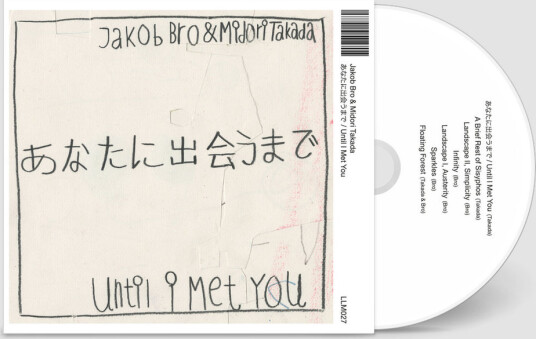 Jakob Bro & Midori Takada
あなたに出会うまで
Until i Met YOU
Jakob Bro & Midori Takada
あなたに出会うまで / Until I Met You
LLM027
あなたに出会うまで / Until I Met You (Takada)
A Brief Rest of Sisyphos (Takada)
Landscape II, Simplicity (Bro)
Infinity (Bro)
Landscape I, Austerity (Bro)
Sparkles (Bro)
Floating Forest (Takada & Bro)